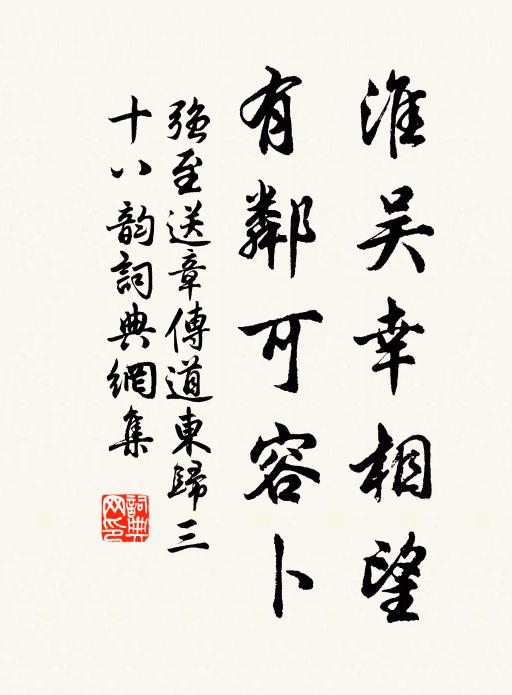 淮吳幸相望
有鄰可容卜
強至送章傳道東歸三
十八韵詞典網集
詞典
网印